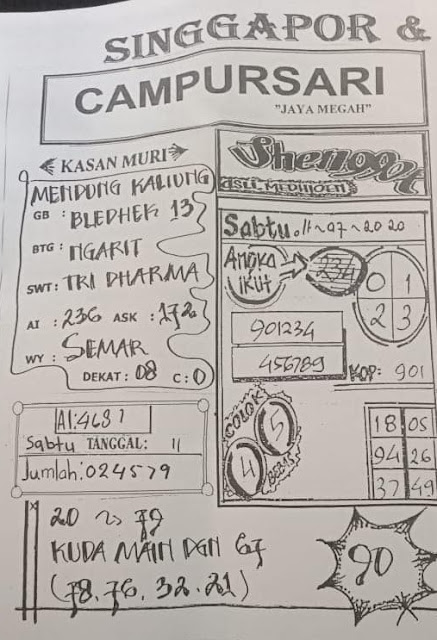 SINGGAPOR &
CAMPURSARI
"JAYA MEGAH"
KASAN MURI
MENDUNG KALIUNG
GB : BLEDHEK 13
BTG : NGARIT
SWT : TRI DHARMA
AI : 236 ASK : 172
WY : SEMAR
DEKAT : 08 C : 0
AI:4681
Sabtu TANGGAL: 11
Jumlah:024579
Shenggot
ASLI MEDHIOEN
Sabtu.11~07~2020
ANGKA IKUT
234
0 1
2 3
901234
456789
KOP: 901
COLOK
4 5
BEBAS
18 05
94 26
37 49
20 ~ 79
KUDA MAIN DGN 67
(78.76.32.21)
90